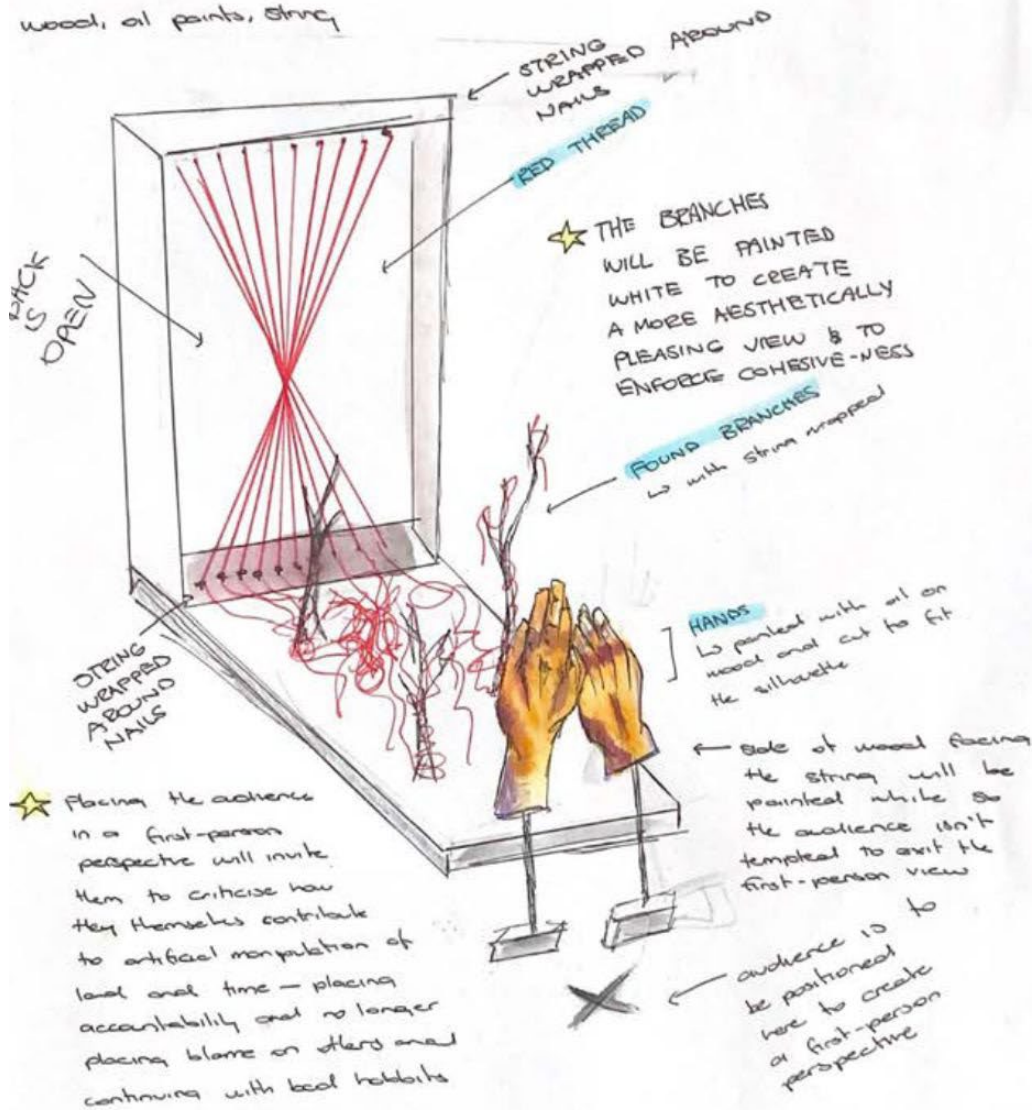 wood, oil paints, string
STRING
WRAPPED AROUND
NAILS
RED THREAD
BACK
IS
OPEN
THE BRANCHES
WILL BE PAINTED
WHITE TO CREATE
A MORE AESTHETICALLY
PLEASING VIEW & TO
ENFORCE COHESIVE-NESS
FOUND BRANCHES
↳ with string wrapped
HANDS
↳ painted with oil on
wood and cut to fit
the silhouette
STRING
WRAPPED
AROUND
NAILS
side of wood facing
the string will be
painted white so
the audience isn't
tempted to exit the
first-person view
Placing the audience
in a first-person
perspective will invite
them to criticise how
they themselves contribute
to artificial manipulation of
land and time — placing
accountability and no longer
placing blame on others and
continuing with bad habbits
audience is to
be positioned
here to create
a first-person
perspective